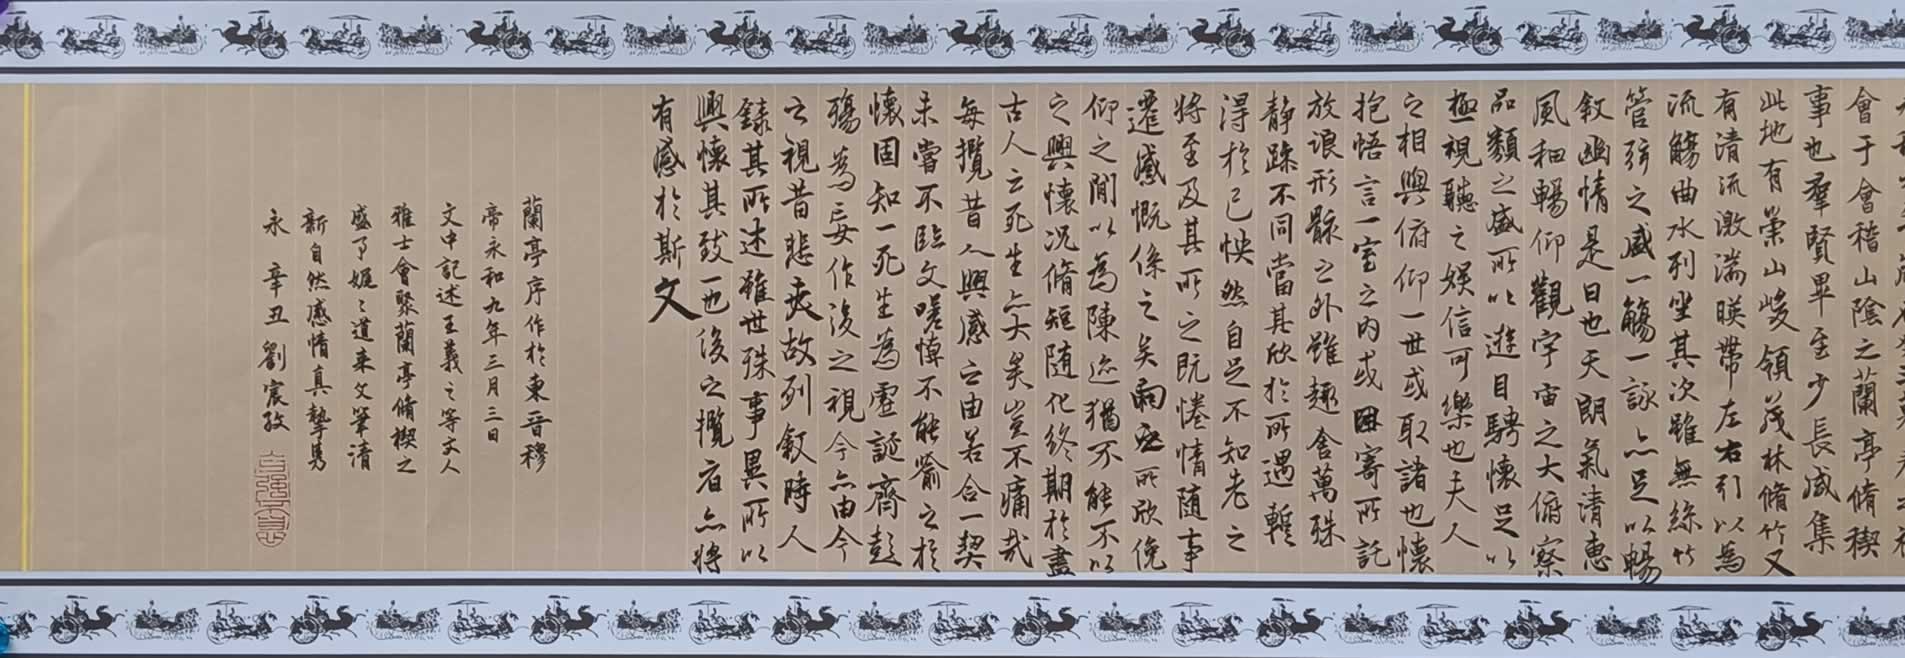 會于會稽山陰之蘭亭脩稧
事也羣賢畢至少長咸集
此地有崇山峻領茂林脩竹又
有清流激湍暎帶左右引以為
流觴曲水列坐其次雖無絲竹
管弦之盛一觴一詠亦足以暢
敘幽情是日也天朗氣清惠
風和暢仰觀宇宙之大俯察
品類之盛所以遊目騁懷足以
極視聽之娛信可樂也夫人
之相與俯仰一世或取諸也懷
抱悟言一室之內或因寄所託
放浪形骸之外雖趣舍萬殊
靜躁不同當其欣於所遇暫
得於己怏然自足不知老之
將至及其所之既惓情隨事
遷感慨係之矣向之所欣俛
仰之間以為陳迹猶不能不以
之興懷況脩短隨化終期於盡
古人云死生亦大矣豈不痛哉
每攬昔人興感之由若合一契
未嘗不臨文嗟悼不能喻之於
懷固知一死生為虛誕齊彭
殤為妄作後之視今亦由今
之視昔悲夫故列敘時人
錄其所述雖世殊事異所以
興懷其致一也後之攬者亦將
有感於斯文
蘭亭序作於東晉穆
帝永和九年三月三日
文中記述王羲之等文人
雅士會聚蘭亭脩禊之
盛了娓々道來文筆清
新自然感情真摯雋
永 辛丑 劉宸孜
自強不息